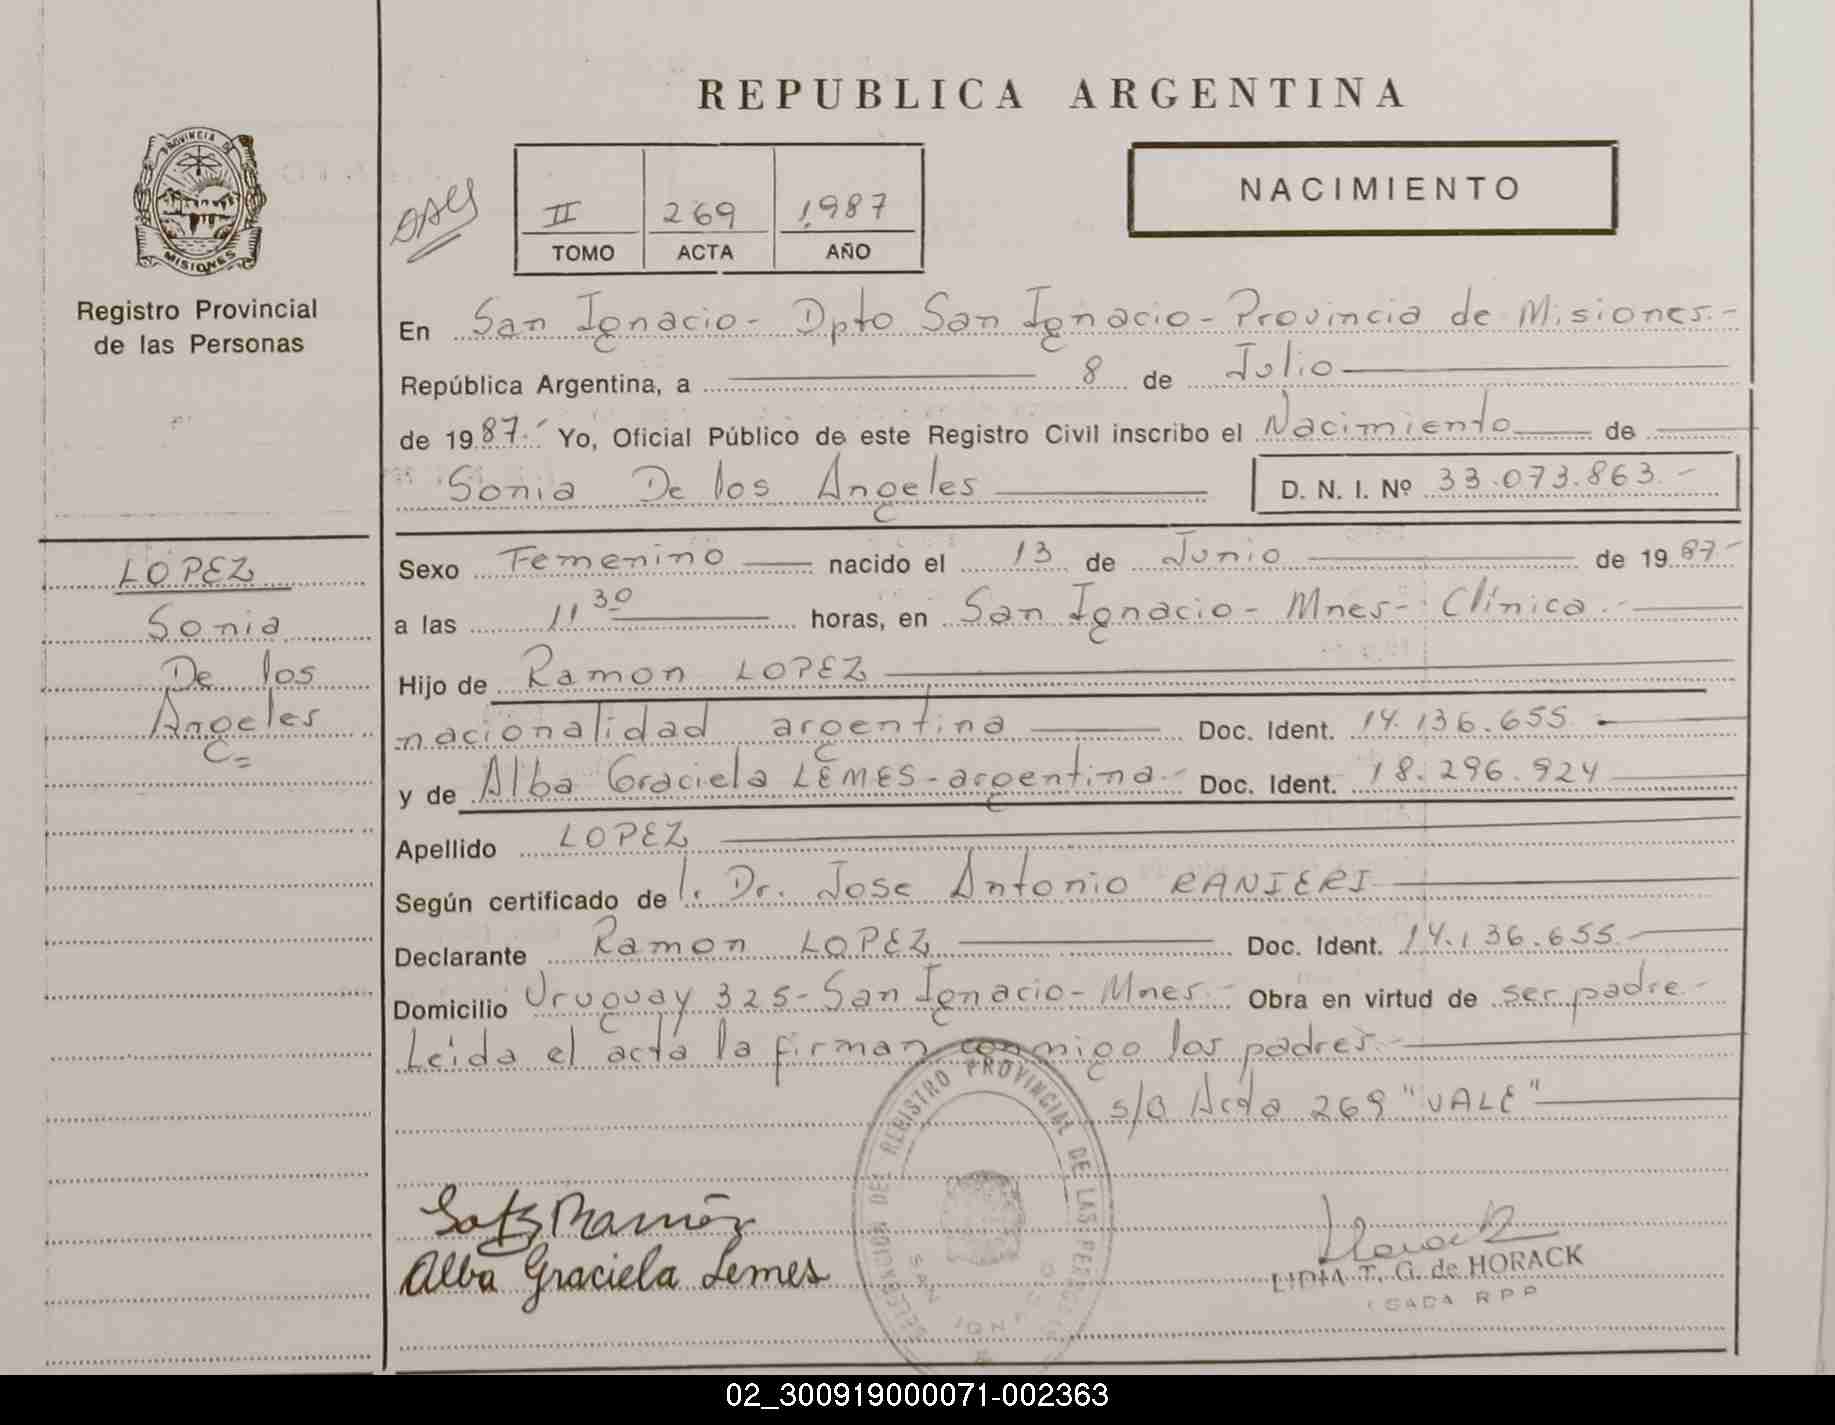 REPUBLICA ARGENTINA
PROVINCIA DE
MISIONES
Registro Provincial
de las Personas
II 269 1987
TOMO ACTA AÑO
NACIMIENTO
En San Ignacio - Dpto San Ignacio - Provincia de Misiones. -
República Argentina, a 8 de Julio
de 19 87.- Yo, Oficial Público de este Registro Civil inscribo el Nacimiento de
Sonia De los Angeles D. N. I. Nº 33.073.863 -
LOPEZ
Sonia
De los
Angeles =
Sexo Femenino nacido el 13 de Junio de 19 87-
a las 11 30 horas, en San Ignacio - Mnes - Clínica. -
Hijo de Ramon LOPEZ
nacionalidad argentina Doc. Ident. 14.136.655 -
y de Alba Graciela LEMES - argentina. - Doc. Ident. 18.296.924
Apellido LOPEZ
Según certificado de l. Dr. Jose Antonio RANIERI
Declarante Ramon LOPEZ Doc. Ident. 14.136.655
Domicilio Uruguay 325 - San Ignacio - Mnes - Obra en virtud de ser padre -
Leida el acta la firman conmigo los padres. -
s/b Acta 269 "VALE"
DELEGACION DEL REGISTRO PROVINCIAL DE LAS PERSONAS
SAN IGNACIO
Ramón
Alba Graciela Lemes
LIDIA T. G. de HORACK
02_300919000071-002363